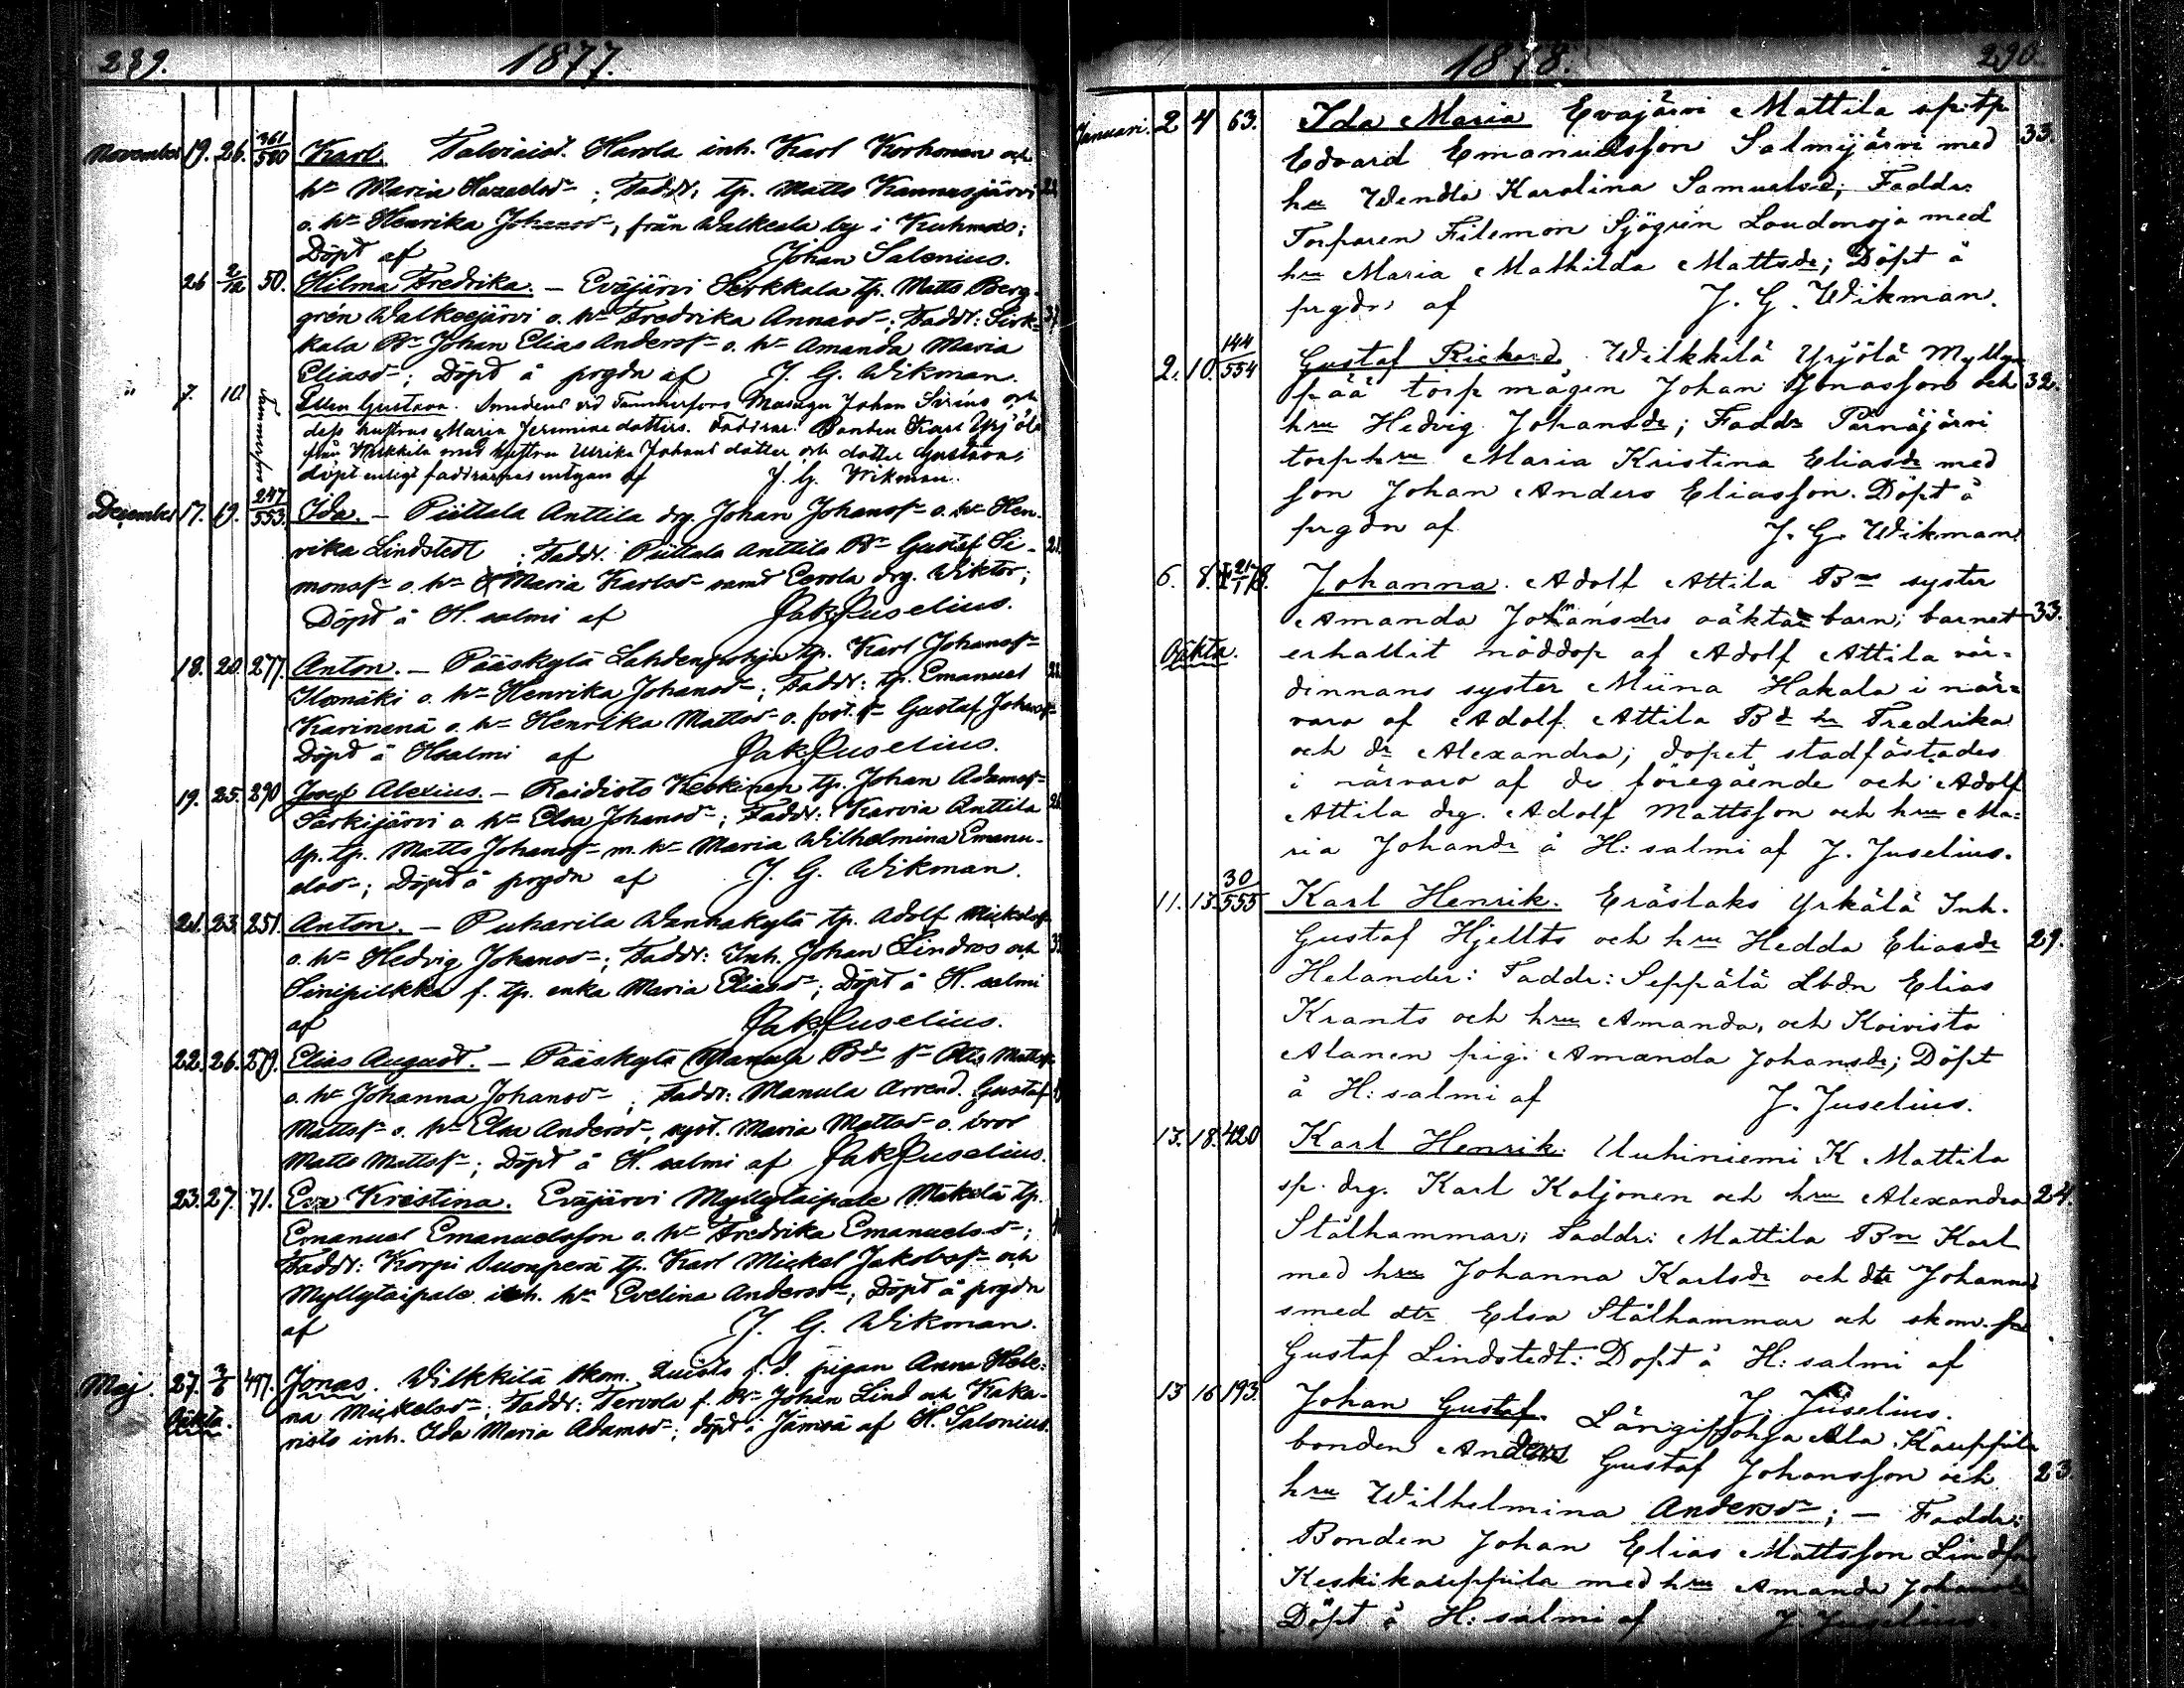 289. 1877.
November 19. 26. 361/580 Karl. Talviaist. Harola inh. Karl Korhonen och
hu Maria ; Faddr: tp. Matts Kannasjärvi
o. hu Henrika Johansdr, från Walkeala by i Kuhmois;
Döpt af Johan Salenius.
26 2/12 50. Hilma Fredrika. – Eväjärvi Sirkkala tp. Matts Berg-
grén Walkeejärvi o. hu Fredrika Annasdr; Faddr: Sirk- 37
kala Bn Johan Elias Andersn o. hu Amanda Maria
Eliasdr; Döpt å prgdn af J. G. Wikman.
" 7. 10 Tammerfors Ellen Gustava. Smedens vid Tammerfors Masugn Johan Sirius och
dess hustrus Maria Jeremiae dotters. Faddrar: Bonden Karl Yrjölä
från Wilkkilä med hustrun Ulrika Johans dotter och dotter Gustava;
döpt enligt faddrarnes intygan af J. G. Wikman.
December 17. 19. 247/553. Ida. – Piittala Anttila drg. Johan Johansn o. hu Hen-
rika Lindstedt ; Faddr. Piittala Anttila Bn Gustaf Si- 21.
monsn o. hu Maria Karlsdr samt Eerola drg. Wiktor;
Döpt å H. salmi af Jak. Juselius.
18. 20. 277. Anton. – Pääskylä Lahdenpohja tp. Karl Johansn
Ilomäki o. hu Henrika Johansdr; Faddr: tp. Emanuel
Karinenä o. hu Henrika Mattsdr o. fost. sn Gustaf Johansn
Döpt å Hsalmi af Jak. Juselius.
19. 25. 290 Josef Alexius. – Raidisto Keskinen tp. Johan Adamsn
Särkijärvi o. hu Elsa Johansdr; Faddr: Karvia Anttila
sp. tp. Matts Johansn m. hu Maria Wilhelmina Emanu-
elsdr; Döpt å prgdn af J. G. Wikman.
21. 23. 251. Anton. – Pukarila Wanhakylä tp. Adolf Mickelsn
o. hu Hedvig Johansdr; Faddr: Inh. Johan Lindros och
Sinipilkka f. tp. enka Maria Eliasdr; Döpt å H. salmi
af Jak. Juselius.
22. 26. 279. Elias August. – Pääskylä Manula Bde sn Otto Mattsn
o. hu Johanna Johansdr ; Faddr: Manula Arrend. Gustaf
Mattsn o. hu Elsa Andersdr, syst. Maria Mattsdr o. bror
Matts Mattsn; Döpt å H. salmi af Jak Juselius.
23. 27. 71. Eva Kristina. Eväjärvi Myllytaipale Mäkelä tp.
Emanuel Emanuelsson o. hu Fredrika Emanuelsdr;
Faddr: Korpi Suonperä tp. Karl Mickel Jakobsn och
Myllytaipale inh. hu Evelina Andersdr; Döpt å prgdn
af J. G. Wikman.
Maj 27. 3/6 497. Jonas. Wilkkilä skom. Quists f. d. pigan Anna Hele-
Oäkta. na Mickelsdr; Faddr: Tervola f. Bn Johan Lind och Kaka-
risto inh. Ida Maria Adamsdr; döpt i Jämsä af H. Salonius.
1878. 290.
Januari. 2 4 63. Ida Maria Evajärvi Mattila sp: tp
Edvard Emanuelsson Salmijärvi med 33.
hru Wendla Karolina Samuelsd; Faddr:
Torparen Filemon Sjögrén Laudonoja med
hru Maria Mathilda Mattsdr; Döpt å
prgdn af J. G. Wikman.
2. 10. 144/554 Gustaf Rickard Wilkkilä Yrjölä Mylly-
pää torp mågen Johan Jonasson och 32.
hru Hedvig Johansdr; Faddr Pärnäjärvi
torphru Maria Kristina Eliasdr med
son Johan Anders Eliasson. Döpt å
prgdn af J. G. Wikman.
6. 8. 21/1 78. Johanna. Adolf Attila Bns syster
Amanda Johansdrs oäkta barn; barnet 33.
Oäkta. erhallit nöddop af Adolf Attila vär-
dinnans syster Miina Hakala i när-
varo af Adolf Attila Bd hr Fredrika
och dr Alexandra; dopet stadfästades
i närvaro af de föregående och Adolf
Attila drg. Adolf Mattsson och hru Ma-
ria Johandr å H: salmi af J. Juselius.
11. 13. 30/555 Karl Henrik. Eräslaks Yrkälä Inh.
Gustaf Hjellts och hru Hedda Eliasdr 29.
Helander: Faddr: Seppälä Lbdn Elias
Krants och hru Amanda, och Koivisto
Alanen pig. Amanda Johansdr; Döpt
å H: salmi af J. Juselius.
13. 18. 420 Karl Henrik. Uuhiniemi K Mattila
sp. drg. Karl Koljonen och hru Alexandra 24.
Stålhammar; Faddr: Mattila Bn Karl
med hru Johanna Karlsdr och dtr Johanna
smed dtr Elsa Stålhammar och skom.
Gustaf Lindstedt: Dopt å H: salmi af
J. Juselius.
13 16 193. Johan Gustaf. Längipohja Ala Kauppila
bonden Anders Gustaf Johansson och 23.
hru Wilhelmina Andersdr; – Faddr:
Bonden Johan Elias Mattsson Lindfors
Keskikauppila med hru Amanda Johansdr
Döpt å H: salmi af J. Juselius